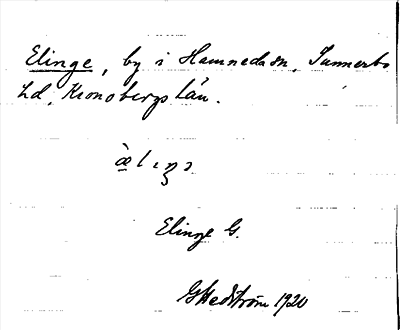 Elinge, by i Hamneda sn, Sunnerbo
hd, Kronobergs län.
Elinge G.
GHedström 1920